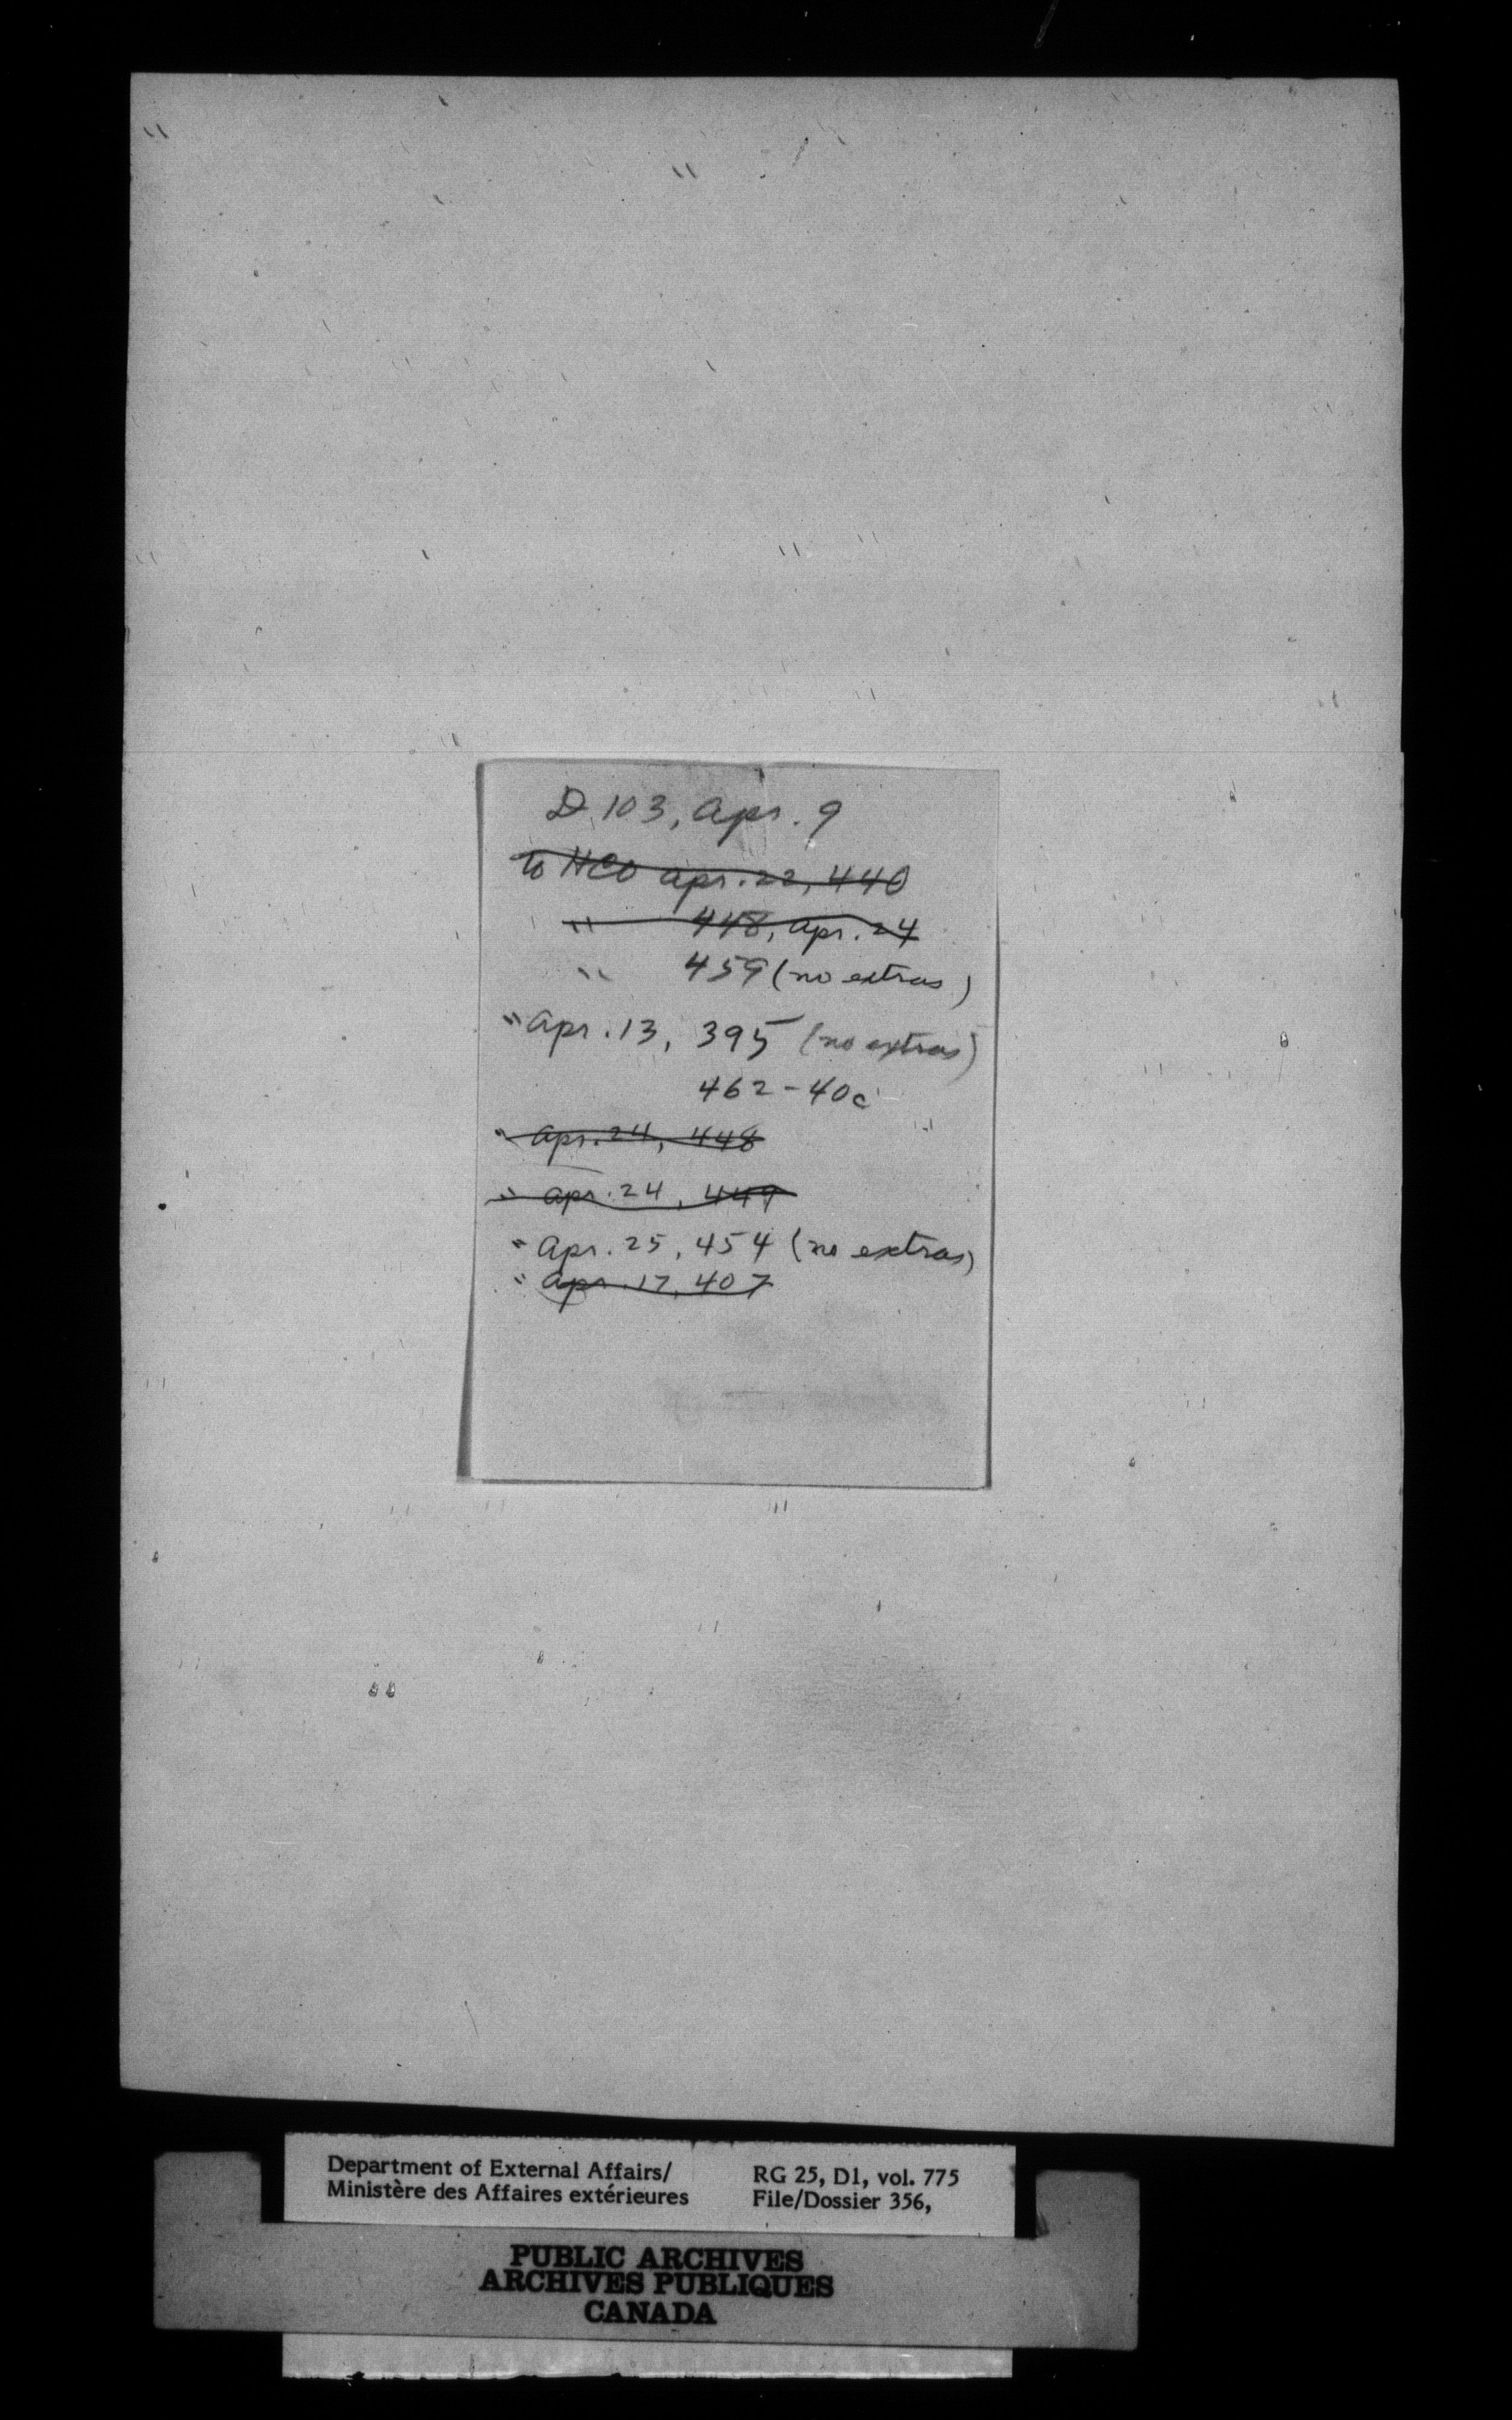 D.103, Apr. 9
to HCO Apr. 22, 440
" 448, Apr. 24
" 459 (no extras)
" Apr. 13, 395 (no extras)
462-40c
" Apr. 24, 448
" Apr. 24, 449
" Apr. 25, 454 (no extras)
" Apr. 17, 407
Department of External Affairs/
Ministère des Affaires extérieures
RG 25, D1, vol. 775
File/Dossier 356,
PUBLIC ARCHIVES
ARCHIVES PUBLIQUES
CANADA